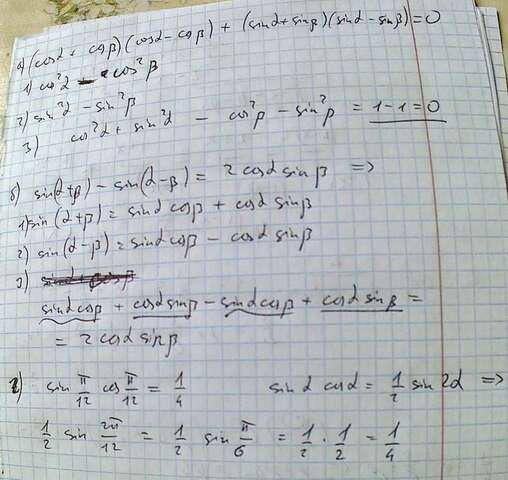 а) (cosα + cosβ)(cosα - cosβ) + (sinα + sinβ)(sinα - sinβ) = 0
1) cos²α - cos²β
2) sin²α - sin²β
3) cos²α + sin²α - cos²β - sin²β = 1 - 1 = 0
б) sin(α+β) - sin(α-β) = 2 cosα sinβ =>
1) sin(α+β) = sinα cosβ + cosα sinβ
2) sin(α-β) = sinα cosβ - cosα sinβ
3)
sinα cosβ + cosα sinβ - sinα cosβ + cosα sinβ =
= 2 cosα sinβ
г) sin π/12 cos π/12 = 1/4 sinα cosα = 1/2 sin 2α =>
1/2 sin 2π/12 = 1/2 sin π/6 = 1/2 · 1/2 = 1/4